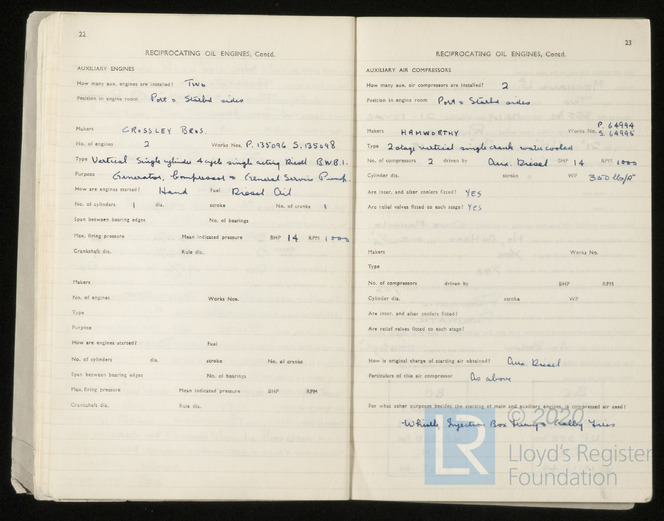 22
RECIPROCATING OIL ENGINES, Contd.
AUXILIARY ENGINES
How many aux. engines are installed? Two
Position in engine room Port & Starbd sides
Makers CROSSLEY BROS.
No. of engines 2 Works Nos. P. 135096 S. 135098
Type Vertical Single cylinder 4 cycle single acting Diesel B.W.B.1.
Purpose Generator, Compressor & General Service Pump.
How are engines started? Hand Fuel Diesel Oil
No. of cylinders 1 dia. stroke No. of cranks 1
Span between bearing edges No. of bearings
Max. firing pressure Mean indicated pressure BHP 14 RPM 1000
Crankshaft dia. Rule dia.
Makers
No. of engines Works Nos.
Type
Purpose
How are engines started? Fuel
No. of cylinders dia. stroke No. of cranks
Span between bearing edges No. of bearings
Max. firing pressure Mean indicated pressure BHP RPM
Crankshaft dia. Rule dia.
23
RECIPROCATING OIL ENGINES, Contd.
AUXILIARY AIR COMPRESSORS
How many aux. air compressors are installed? 2
Position in engine room Port & Starbd sides
P. 64994
Makers HAMWORTHY Works No. S. 64995
Type 2 stage vertical single crank water cooled
No. of compressors 2 driven by Aux. Diesel BHP 14 RPM 1000
Cylinder dia. stroke WP 350 lb/□"
Are inter. and after coolers fitted? YES
Are relief valves fitted to each stage? YES
Makers Works No.
Type
No. of compressors driven by BHP RPM
Cylinder dia. stroke WP
Are inter. and after coolers fitted?
Are relief valves fitted to each stage?
How is original charge of starting air obtained? Aux. Diesel
Particulars of this air compressor As above
For what other purposes besides the starting of main and auxiliary engines, is compressed air used?
Whistle, Injection Box
© 2020
LR Lloyd's Register
Foundation